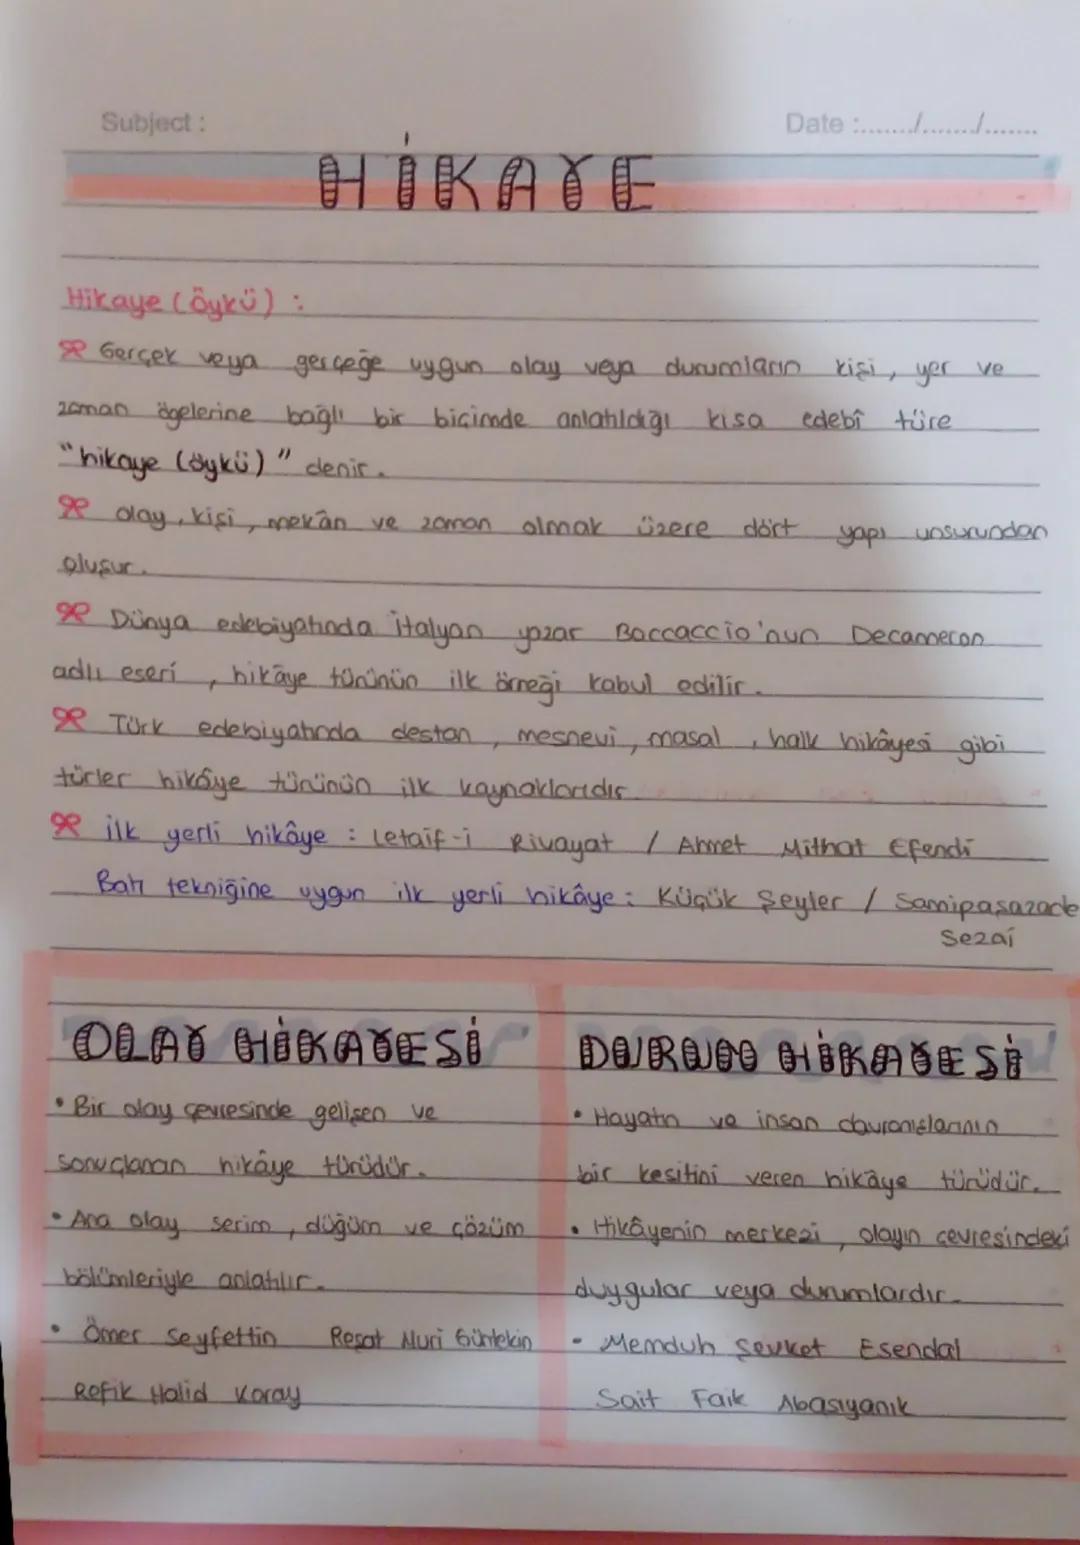 Subject :
Date :......../......../........
HİKAYE
Hikaye (öykü) :
Gerçek veya gerçeğe uygun olay veya durumların kişi, yer ve
zaman ögelerine bağlı bir biçimde anlatıldığı kısa edebî türe
"hikaye (öykü)" denir.
olay, kişi, mekân ve zaman olmak üzere dört yapı unsurundan
oluşur.
Dünya edebiyatında İtalyan yazar Baccaccio'nun Decameron
adlı eseri, hikâye türünün ilk örneği kabul edilir.
Türk edebiyatında destan, mesnevi, masal, halk hikâyesi gibi
türler hikâye türünün ilk kaynaklarıdır.
ilk yerli hikâye : Letaif-i Rivayat / Ahmet Mithat Efendi
Batı tekniğine uygun ilk yerli hikâye : Küçük Şeyler / Samipaşazade
Sezai
OLAY HİKAYESİ
• Bir olay çevresinde gelişen ve
sonuçlanan hikâye türüdür.
• Ana olay serim, düğüm ve çözüm
bölümleriyle anlatılır.
• Ömer Seyfettin Reşat Nuri Güntekin
Refik Halid Karay
DURUM HİKAYESİ
• Hayatın ve insan davranışlarının
bir kesitini veren hikâye türüdür.
• Hikâyenin merkezi, olayın çevresindeki
duygular veya durumlardır.
• Memduh Şevket Esendal
Sait Faik Abasıyanık